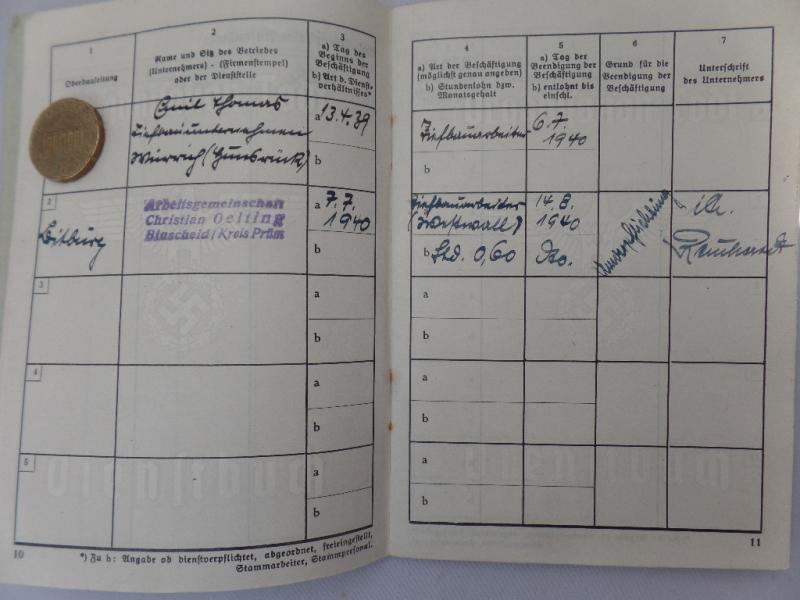 1
2
3
Oberbauleitung
Name und Sitz des Betriebes
(Unternehmers) - (Firmenstempel)
oder der Dienststelle
a) Tag des
Beginns der
Beschäftigung
b) Art d. Dienst-
verhältnisses*
Emil Thomas
Tiefbauunternehmen
Würrich (Hunsrück)
a 13.4.39
b
2
Bitburg
Arbeitsgemeinschaft
Christian Oelting
Binscheid/Kreis Prüm
a 7.7.
1940
b
3
a
b
4
a
b
5
a
b
Dienstbuch
*) Zu b: Angabe ob dienstverpflichtet, abgeordnet, freieingestellt,
Stammarbeiter, Stammpersonal.
10
4
5
6
7
a) Art der Beschäftigung
(möglichst genau angeben)
b) Stundenlohn bzw.
Monatsgehalt
a) Tag der
Beendigung der
Beschäftigung
b) entlohnt bis
einschl.
Grund für die
Beendigung der
Beschäftigung
Unterschrift
des Unternehmers
Tiefbauarbeiter
6.7.
1940
b
Tiefbauarbeiter
(Westwall)
14.8.
1940
b Std. 0,60
do.
a
b
a
b
a
b
11